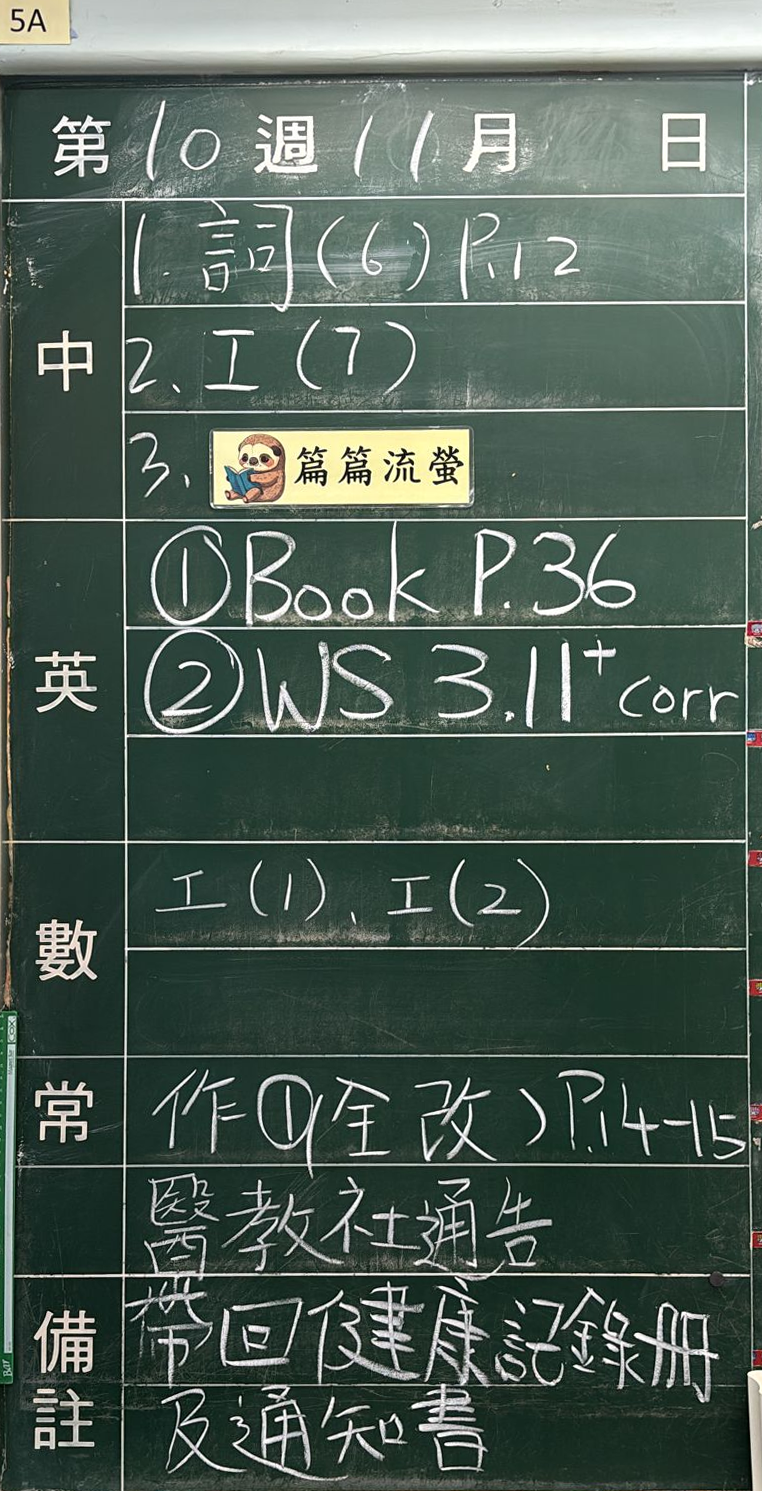 5A
第10週11月 日
中
1. 詞(6) P.12
2. 工(7)
3. 篇篇流螢
英
①Book P.36
②WS 3.11+corr
數
工(1)、工(2)
常
作①(全改)P.14-15
醫教社通告
備註
帶回健康記錄冊
及通知書